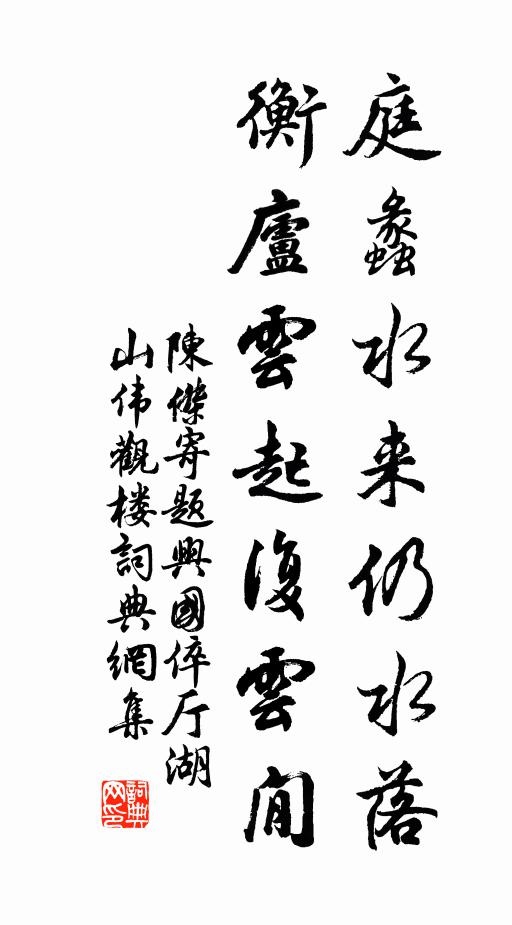 庭蠡水来仍水落
衡廬雲起復雲閒
陳傑寄题興國倅厅湖
山伟觀楼詞典網集
詞典
网印